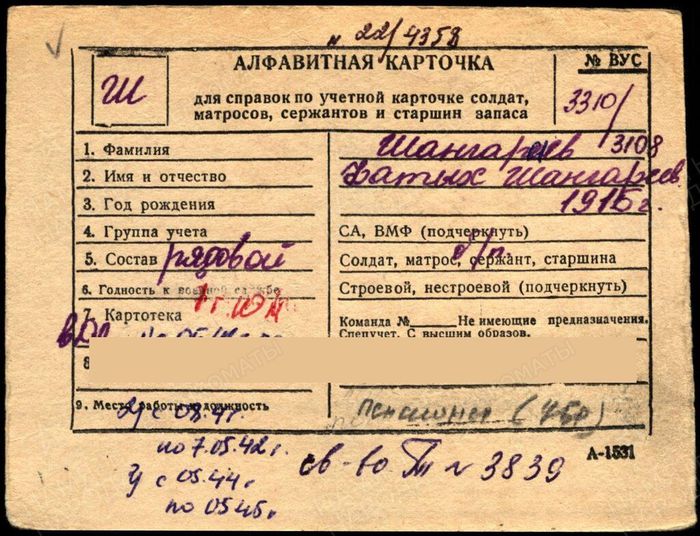 № 22/4358
АЛФАВИТНАЯ КАРТОЧКА
№ ВУС
Ш
для справок по учетной карточке солдат,
матросов, сержантов и старшин запаса
3310/
3108
1. Фамилия Шангареев
2. Имя и отчество Фатых Шангареев.
3. Год рождения 1915г.
4. Группа учета СА, ВМФ (подчеркнуть)
5. Состав рядовой Солдат, матрос, сержант, старшина
6. Годность к военной службе Строевой, нестроевой (подчеркнуть)
7. Картотека Команда № Не имеющие предназначения.
Спецучет. С высшим образов.
8
9. Место работы и должность Пенсионер
по 7.05.42г.
У с 05.44г
по 05.45г.
св-во № 3839
А-1531